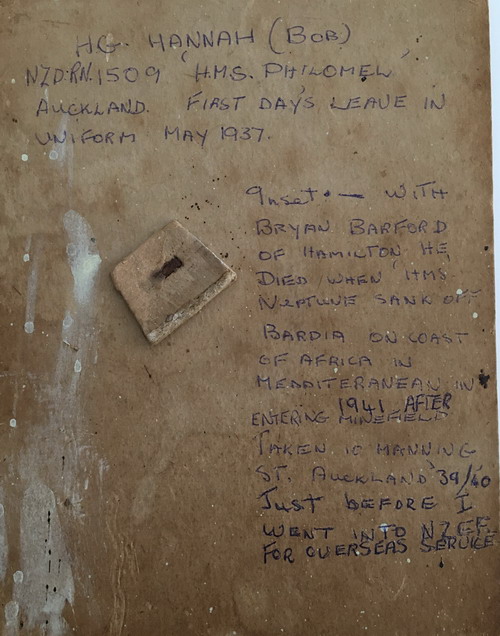 H.G. HANNAH (BOB)
NZD.RN.1509 "H.M.S. PHILOMEL"
AUCKLAND. FIRST DAY'S LEAVE IN
UNIFORM MAY 1937.
Inset • — WITH
BRYAN BARFORD
OF HAMILTON HE
DIED WHEN "HMS
NEPTUNE SANK OFF
BARDIA ON COAST
OF AFRICA IN
MEDDITERANEAN IN
1941 AFTER
ENTERING MINEFIELD
TAKEN IO MANNING
ST. AUCKLAND '39/40
JUST BEFORE I
WENT INTO NZEF.
FOR OVERSEAS SERVICE